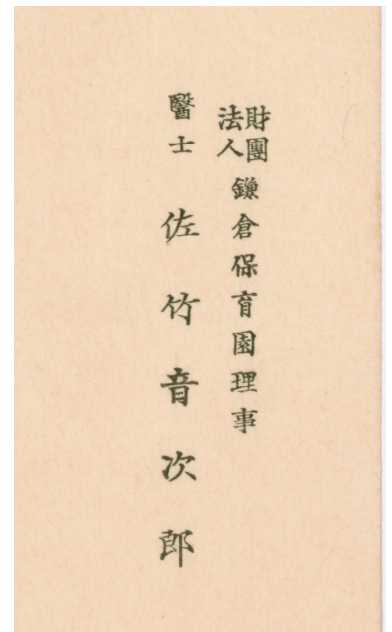 財團法人鎌倉保育園理事
醫士 佐竹音次郎